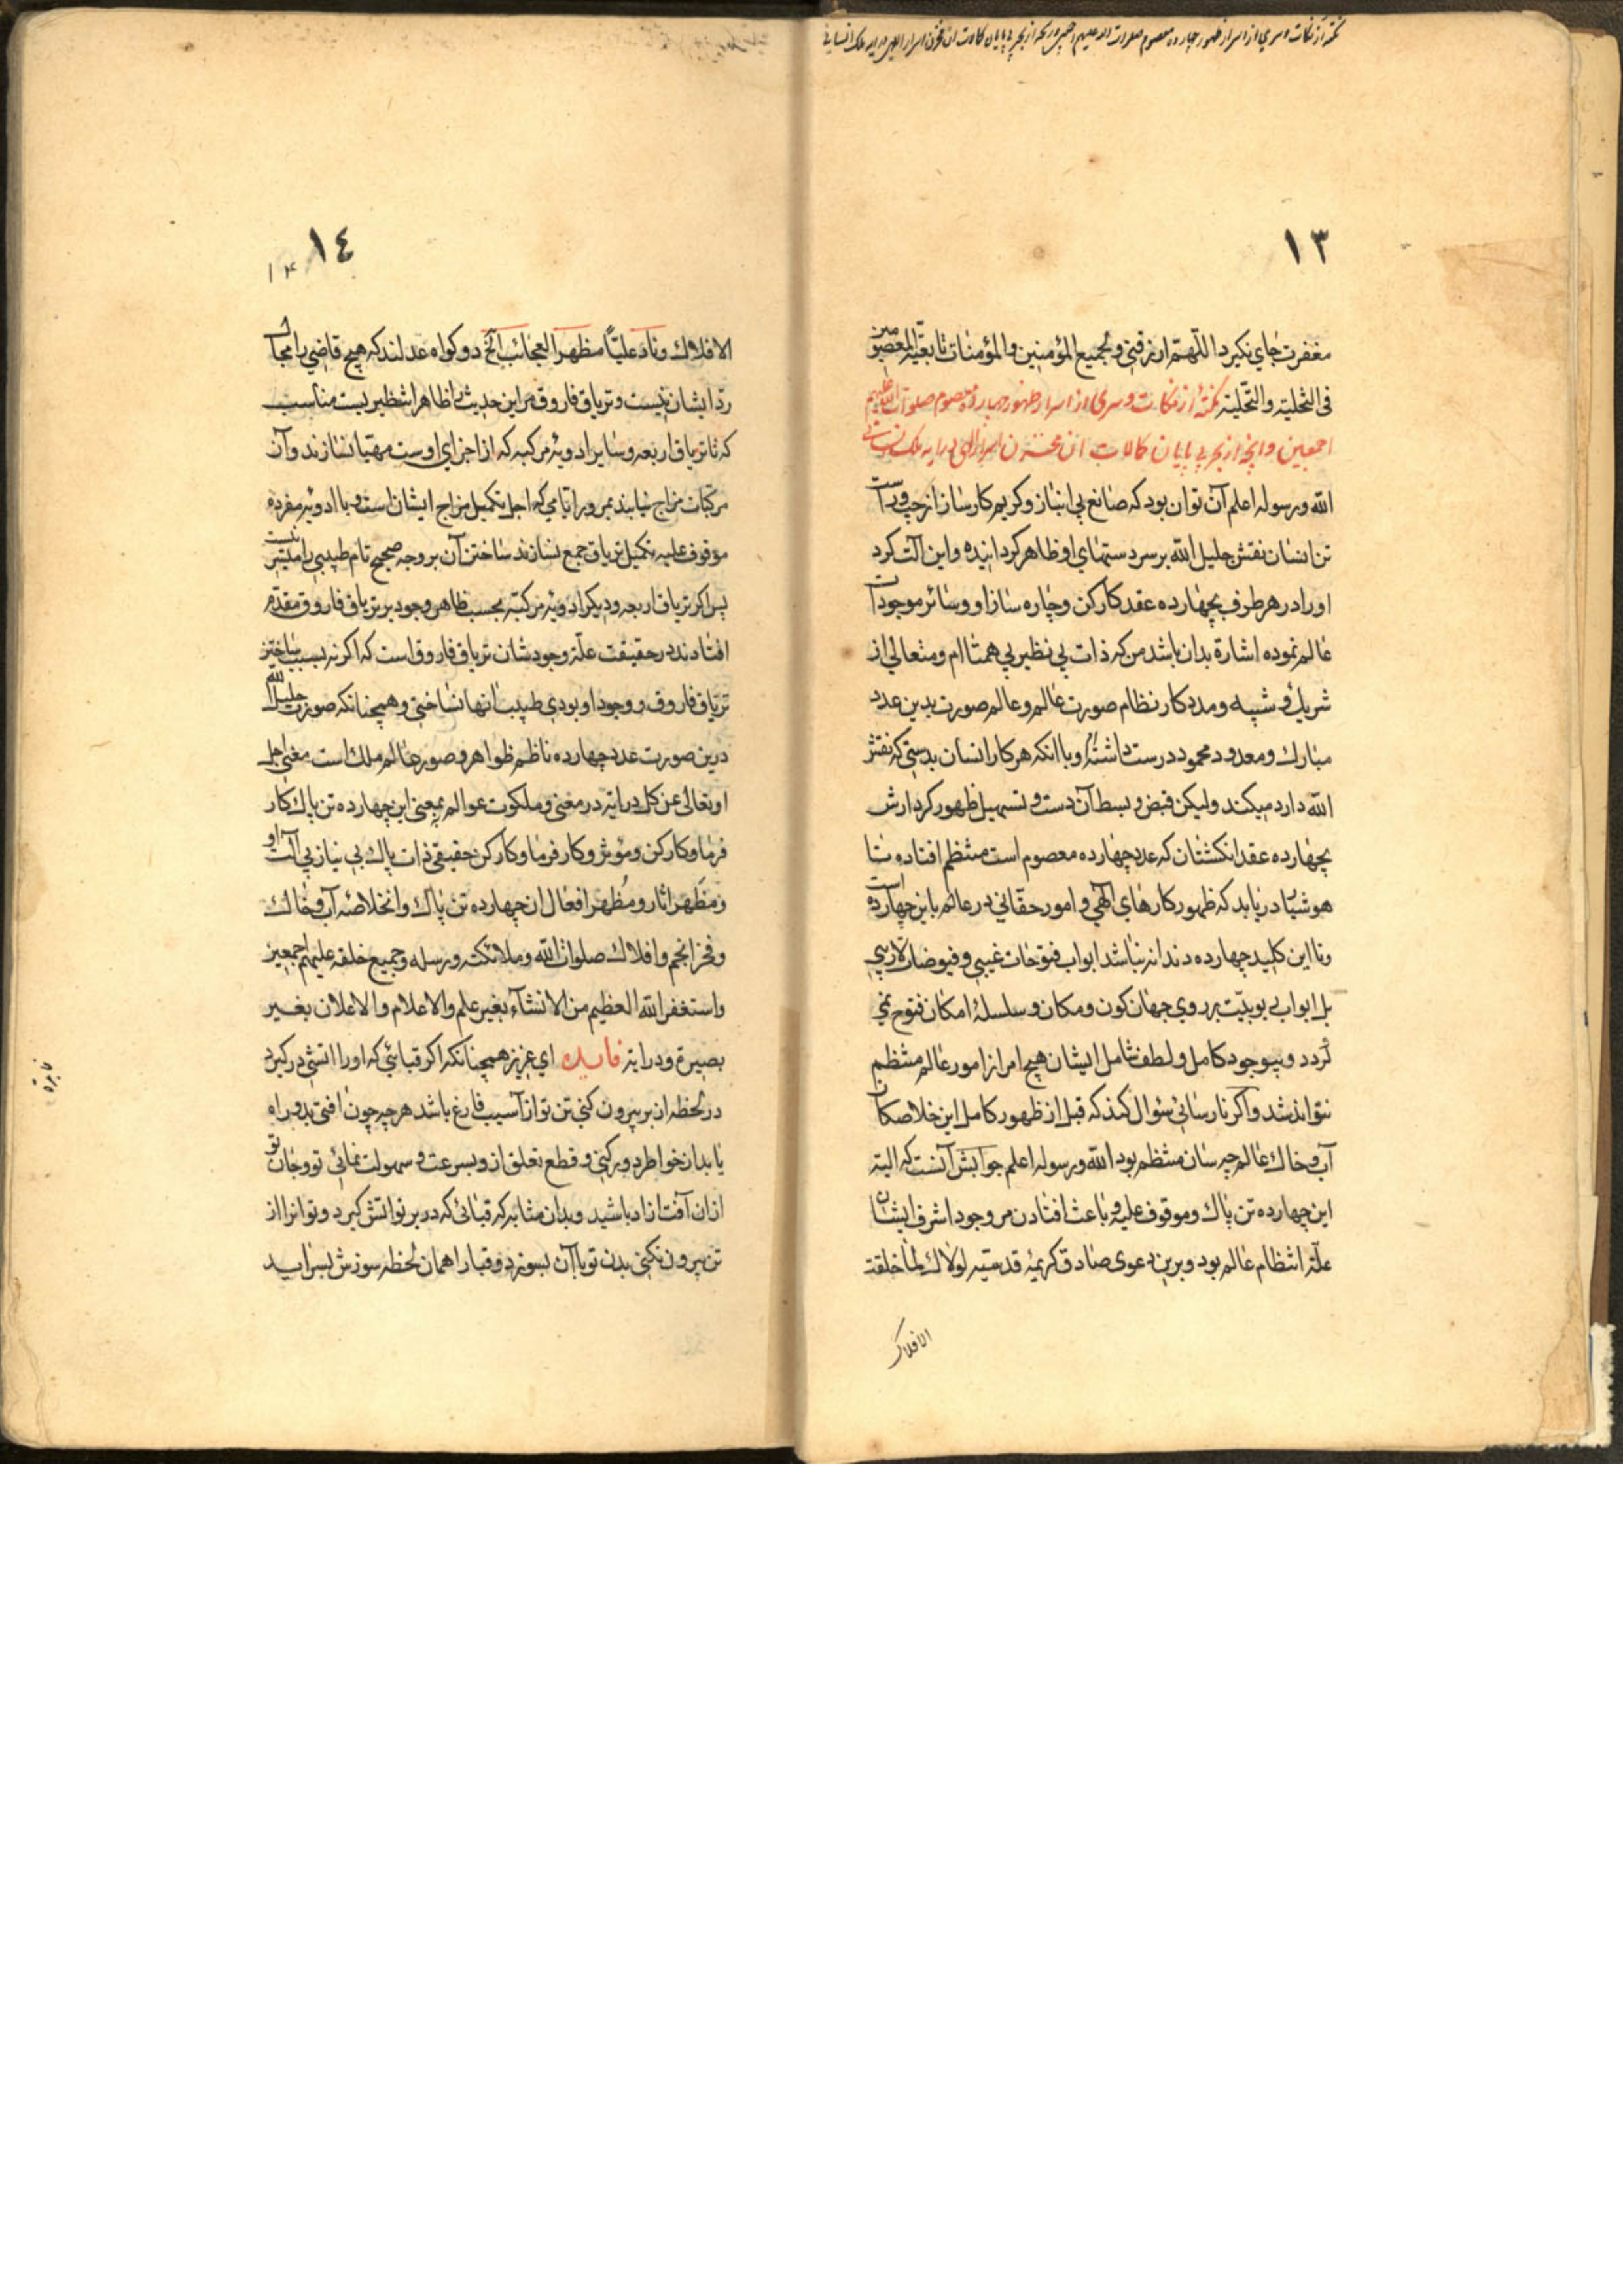 نکته از نکات و سری از اسرار ظهور چهارده معصوم صلوات الله علیهم اجمعین و بحر از بحر بی پایان کمالات ان مخزن اسرار الهی
١٣
مغفرت جای نکیرد اللهم ارزقنی و لجمیع المؤمنین والمؤمنات تابعیة المعصومین
فی التخلیة والتحلیة نکتهٔ از نکات و سری از اسرار ظهور چهارده معصوم صلوات الله علیهم
اجمعین و از بحر بی پایان کمالات ان مخزن اسرار الهی
الله و رسوله اعلم آن توان بود که صانع بی انباز و کریم کارساز از چپ و راست
تن انسان نقش جلیل الله بر سر دستهای او ظاهر کردانیده و این آلت کرد
او را در هر طرف بچهارده عقد کارکن و چاره ساز او و سائر موجودات
عالم نموده اشارة بدان باشد من که ذات بی نظیر بی همتا ام و متعالی از
شریک و شبیه و مددکار نظام صورت عالم و عالم صورت بدین عدد
مبارک و معدود محمود درست داشته و با انکه هر کار انسان بدستی که نقش
الله دارد میکند ولیکن قبض و بسط آن دست و تسهیل ظهور کردارش
بچهارده عقد انکشتان که عدد چهارده معصوم است منتظم افتاده تا
هوشیار دریابد که ظهور کارهای الهی و امور حقانی در عالم باین چهارده است
و تا این کلید چهارده دندانه نباشد ابواب فتوحات غیبی و فیوضات لاریبی
بل ابواب بوبیت بر روی جهان کون و مکان و سلسلهٔ امکان فتوح نمی
کردد و بیوجود کامل و لطف شامل ایشان هیچ امر از امور عالم منتظم
نتواند شد و اکر نارسائی سؤال کند که قبل از ظهور کامل این خلاصکان
آب و خاک عالم چه سان منتظم بود الله و رسوله اعلم جوابش آنست که البته
این چهارده تن پاک و موقوف علیه و باعث افتادن مر وجود اشرف ایشان
علة انتظام عالم بود و برین دعوی صادق کریمهٔ قدسیه لولاک لما خلقت
الافلاک
١٤
۱۴
الافلاک و ناد علیّاً مظهر العجائب الخ دو کواه عدلند که هیچ قاضی را مجال
ردّ ایشان نیست و تریاق فاروق مر این حدیث را ظاهرا تنظیریست مناسب
که تا تریاق اربعه و سایر ادویهٔ مرکبه که از اجزای اوست مهیا نسازند و آن
مرکبات مزاج نیابند بمرور ایامی که اجل تکمیل مزاج ایشان است و با ادویهٔ مفرده
موقوف علیه تکمیل تریاق جمع نسازند ساختن آن بر وجه صحیح تام طبیبی را میسر نیست
پس اکر تریاق اربعه و دیکر ادویهٔ مرکبه بحسب ظاهر وجود بر تریاق فاروق مقدم
افتادند در حقیقت علة وجودشان تریاق فاروق است که اکر نه بسبب ساختن
تریاق فاروق و وجود او بودی طبیب آنها نساختی و همچنانکه صورت جلیل الله
درین صورت عدد چهارده ناظم ظواهر و صور عالم ملک است معنی اجل
او تعالی عن کل درایة در معنی و ملکوت عوالم بمعنی این چهارده تن پاک کار
فرما و کارکن و مؤثر و کارفرما و کارکن حقیقی ذات پاک بی نیاز بی آلت او
و مَظهر اثار و مُظهر افعال ان چهارده تن پاک و انخلاصهٔ آب و خاک
و فخر انجم و افلاک صلوات الله و ملائکته و رسله و جمیع خلقه علیهم اجمعین
و استغفر الله العظیم من الانشآء بغیر علم والاعلام والاعلان بغیر
بصیرة و درایة فایده ای عزیز همچنانکه اکر قبائی که او را اتشی در کیرد
در لحظه از بر بیرون کنی تن تو از آسیب فارغ باشد هر چه چون افتی بدو راه
یابد از خواطر دور کنی و قطع تعلق از و بسرعت و سهولت نمائی تو و جان تو
ازان آفت ازاد باشید و بدان مثابه که قبائی که در بر تو اتش کیرد و تو انرا از
تن بیرون نکنی بدن تو با آن بسوزد و قبا را همان لحظه سوزش بسراید
فایده